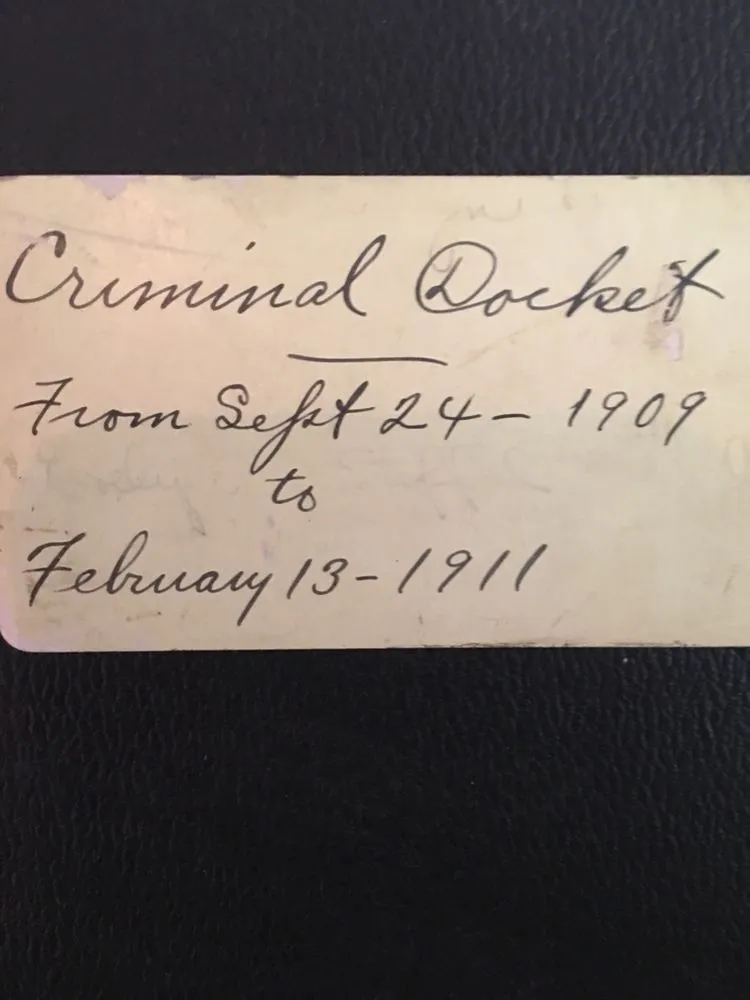 Criminal Docket
From Sept 24 - 1909
to
February 13 - 1911